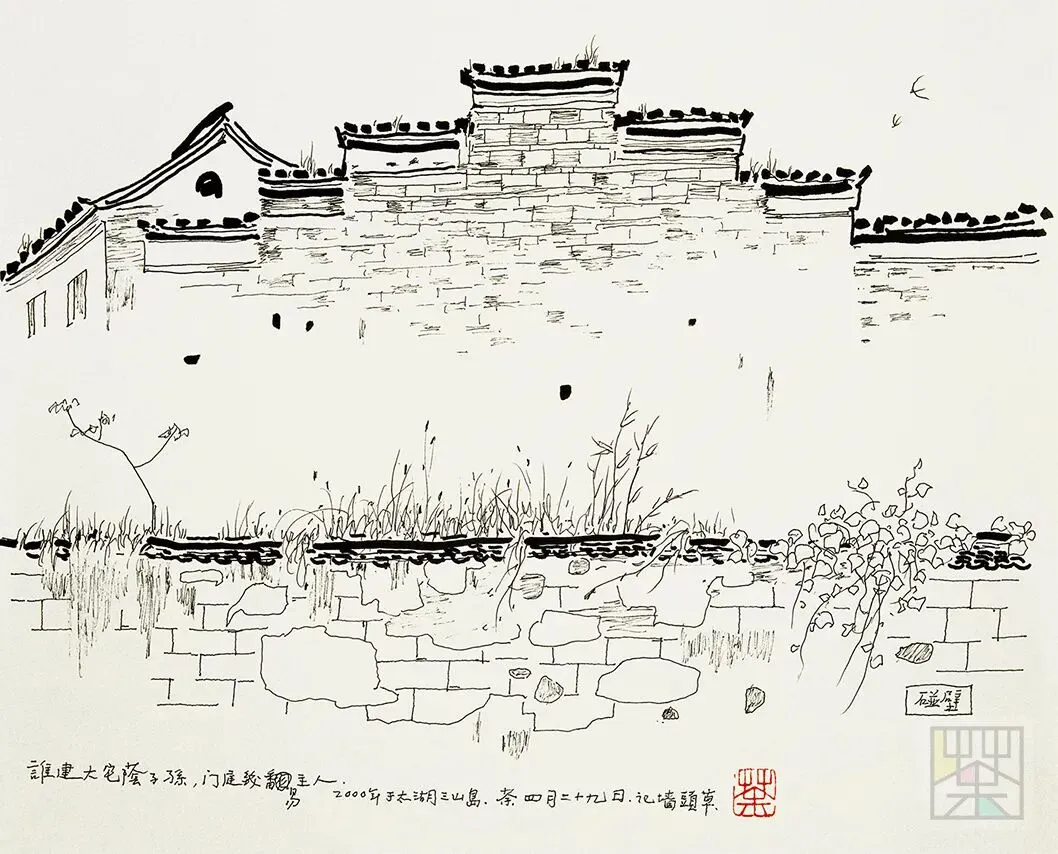 碰壁
誰建大宅蔭子孫,门庭幾翻易主人.
2000年于太湖三山島.荼 四月二十九日.记墙頭草
荼
荼